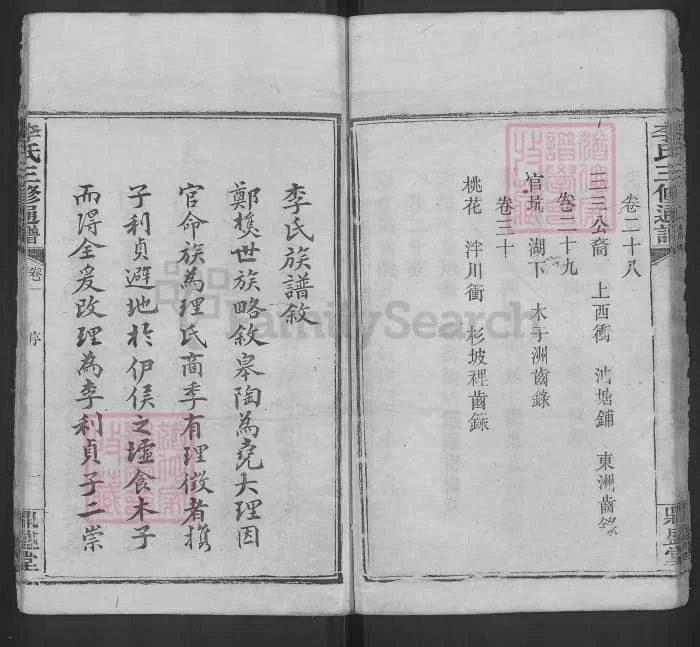 李氏三修通譜
卷二十八
三三公裔 上西衝 池塘鋪 東洲齒錄
卷二十九
官坑 湖下 木子洲齒錄
卷三十
桃花 泮川衝 杉坡裡齒錄
鼎盛堂
李氏族譜敘
鄭樵世族略敘皋陶為堯大理因
官命族為理氏商季有理徵者攜
子利貞避地於伊侯之墟食木子
而得全爰改理為李利貞子二崇
李氏三修通譜
卷一
序
一
鼎盛堂
FamilySearch